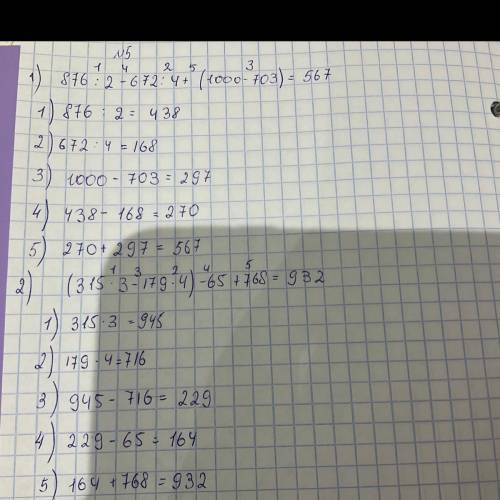 N5
1) 876 :¹ 2 -⁴ 672 :² 4 +⁵ (1000 -³ 703) = 567
1) 876 : 2 = 438
2) 672 : 4 = 168
3) 1000 - 703 = 297
4) 438 - 168 = 270
5) 270 + 297 = 567
2) (315 ·¹ 3 -³ 179 ·² 4) -⁴ 65 +⁵ 768 = 932
1) 315 · 3 = 945
2) 179 · 4 = 716
3) 945 - 716 = 229
4) 229 - 65 = 164
5) 164 + 768 = 932